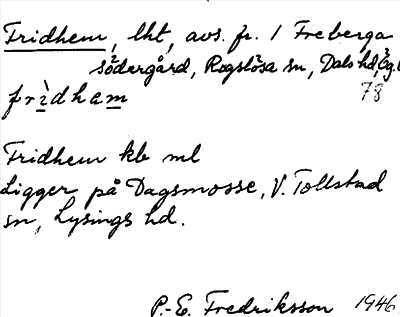 Fridhem, lht, avs. fr. 1 Freberga
södergård, Rogslösa sn, Dals hd, Ög.
frìdham 78
Fridhem kb ml
Ligger på Dagsmosse, V. Tollstad
sn, Lysings hd.
P.-E. Fredriksson 1946.